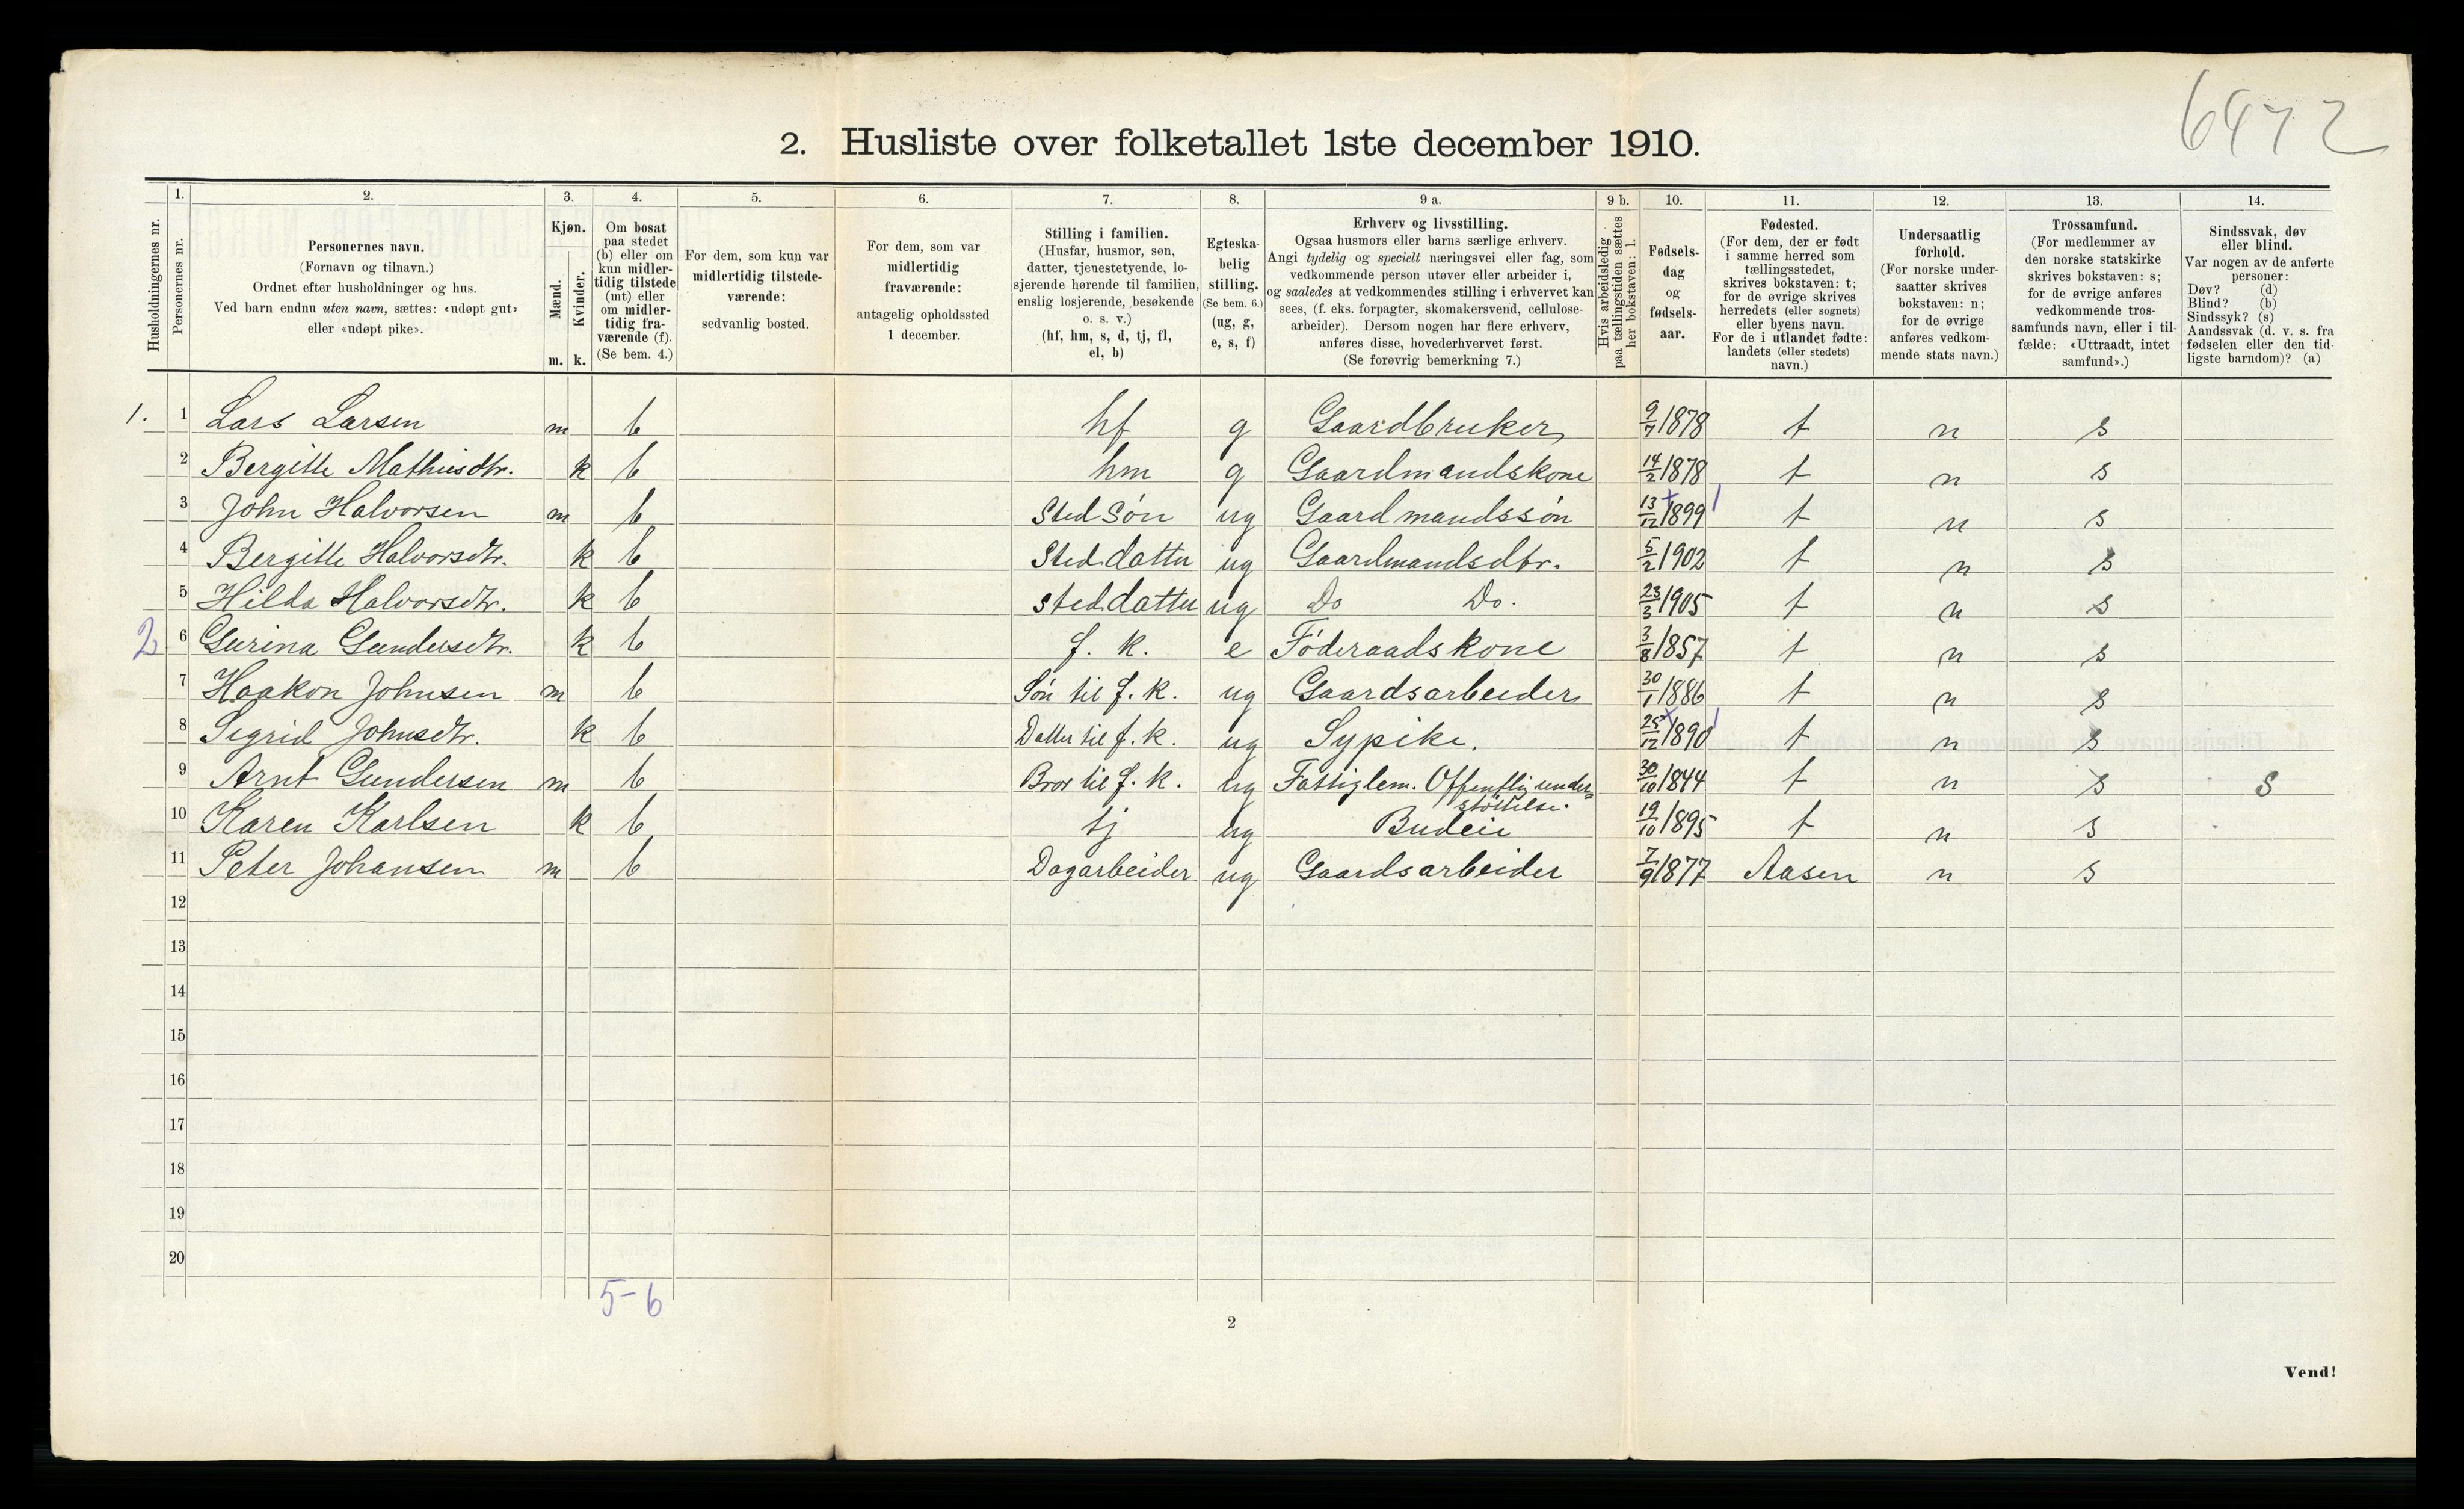 6472
2. Husliste over folketallet 1ste december 1910.
Husholdningernes nr.
1. Personernes nr.
2. Personernes navn. (Fornavn og tilnavn.) Ordnet efter husholdninger og hus. Ved barn endnu uten navn, sættes: «udøpt gut» eller «udøpt pike».
3. Kjøn. Mænd. m. Kvinder. k.
4. Om bosat paa stedet (b) eller om kun midlertidig tilstede (mt) eller om midlertidig fraværende (f). (Se bem. 4.)
5. For dem, som kun var midlertidig tilstedeværende: sedvanlig bosted.
6. For dem, som var midlertidig fraværende: antagelig opholdssted 1 december.
7. Stilling i familien. (Husfar, husmor, søn, datter, tjenestetyende, losjerende hørende til familien, enslig losjerende, besøkende o. s. v.) (hf, hm, s, d, tj, fl, el, b)
8. Egteskabelig stilling. (Se bem. 6.) (ug, g, e, s, f)
9 a. Erhverv og livsstilling. Ogsaa husmors eller barns særlige erhverv. Angi tydelig og specielt næringsvei eller fag, som vedkommende person utøver eller arbeider i, og saaledes at vedkommendes stilling i erhvervet kan sees, (f. eks. forpagter, skomakersvend, cellulosearbeider). Dersom nogen har flere erhverv, anføres disse, hovederhvervet først. (Se forøvrig bemerkning 7.)
9 b. Hvis arbeidsledig paa tællingstiden sættes her bokstaven: l.
10. Fødselsdag og fødselsaar.
11. Fødested. (For dem, der er født i samme herred som tællingsstedet, skrives bokstaven: t; for de øvrige skrives herredets (eller sognets) eller byens navn. For de i utlandet fødte: landets (eller stedets) navn.)
12. Undersaatlig forhold. (For norske undersaatter skrives bokstaven: n; for de øvrige anføres vedkommende stats navn.)
13. Trossamfund. (For medlemmer av den norske statskirke skrives bokstaven: s; for de øvrige anføres vedkommende trossamfunds navn, eller i tilfælde: «Uttraadt, intet samfund».)
14. Sindssvak, døv eller blind. Var nogen av de anførte personer: Døv? (d) Blind? (b) Sindssyk? (s) Aandssvak (d. v. s. fra fødselen eller den tidligste barndom)? (a)
1. 1 Lars Larsen m b hf g Gaardbruker 9/7 1878 t n s
2 Bergitte Mathiesdtr. k b hm g Gaardmandskone 14/2 1878 t n s
3 John Halvorsen m b Sted Søn ug Gaardmandssøn 13/12 1899 t n s
4 Bergitte Halvorsdtr. k b Sted datter ug Gaardmandsdtr. 5/2 1902 t n s
5 Hilda Halvorsdtr. k b sted datter ug Do Do. 23/3 1905 t n s
2 6 Gurina Gundersdtr. k b f. k. e Føderaadskone 3/8 1857 t n s
7 Haakon Johnsen m b Søn til f. k. ug Gaardsarbeider 30/1 1886 t n s
8 Sigrid Johnsdtr. k b Datter til f. k. ug Sypike. 25/12 1890 t n s
9 Arnt Gundersen m b Bror til f. k. ug Fattiglem. Offentlig understøttelse. 30/10 1844 t n s S
10 Karen Karlsen k b tj ug Budeie 19/10 1895 t n s
11 Peter Johansen m b Dagarbeider ug Gaardsarbeider 7/9 1877 Aasen n s
12
13
14
15
16
17
18
19
20
5-6
2
Vend!